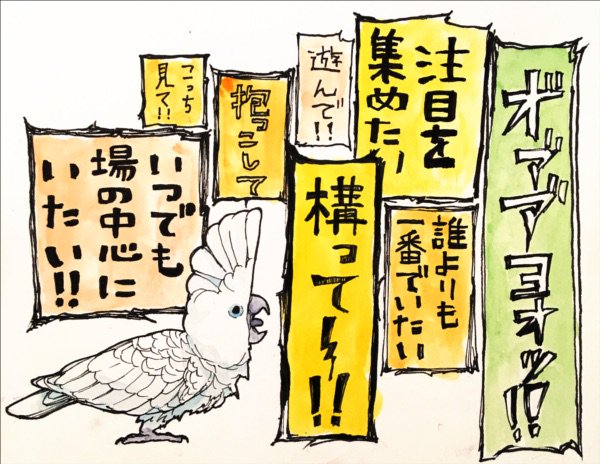 ギャアアヨオッ!!
注目を
集めたい
遊んで!!
抱っこして
こっち
見て!!
誰よりも
一番でいたい
構って〜!!
いつでも
場の中心に
いたい!!